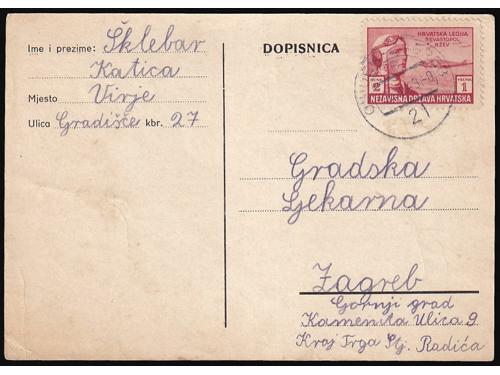 Ime i prezime: Šklebar
Katica
Mjesto Virje
Ulica Gradišće kbr. 27
DOPISNICA
HRVATSKA LEGIJA
SEVASTOPOL
RŽEV
2 1
NEZAVISNA DRŽAVA HRVATSKA
21
Gradska
Ljekarna
Zagreb
Gornji grad
Kamenita Ulica 9
Kraj Trga Stj. Radića